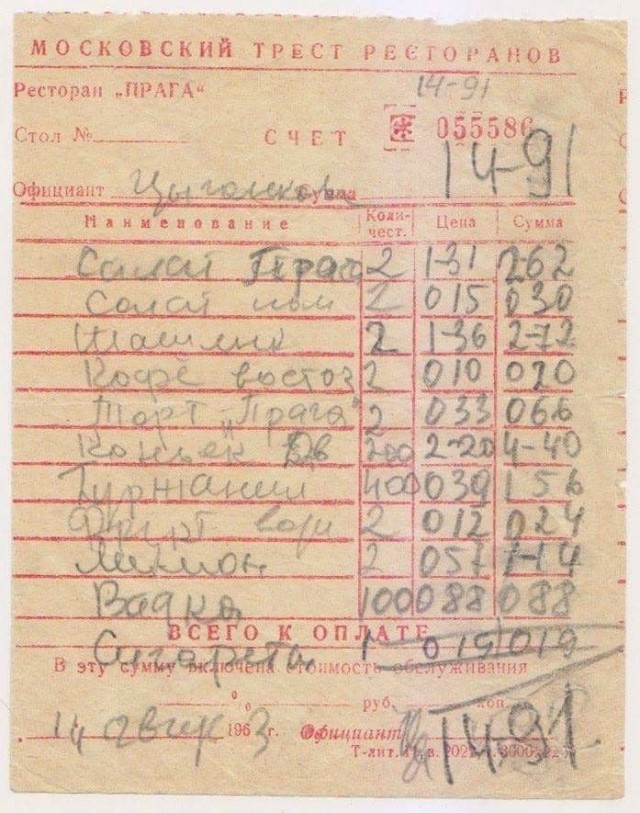 МОСКОВСКИЙ ТРЕСТ РЕСТОРАНОВ
Ресторан „ПРАГА“ 14-91
Стол № СЧЕТ 055586
14-91
Официант Сумма
Наименование Коли-чест. Цена Сумма
Салат Праг 2 1-31 2-62
Солат пом 2 015 030
Шашлик 2 1-36 2-72
Кофе восто 2 010 020
Торт „Прага“ 2 033 066
Коньяк 200 2-20 4-40
Гуржаани 400 039 156
Фрукт вода 2 012 024
Лимон 2 057 1-14
Водка 100 088 088
ВСЕГО К ОПЛАТЕ
Сигареты 1 019 019
В эту сумму включена стоимость обслуживания
% руб. коп.
14 август 1963 г. Официант 14-91
Т-лит.